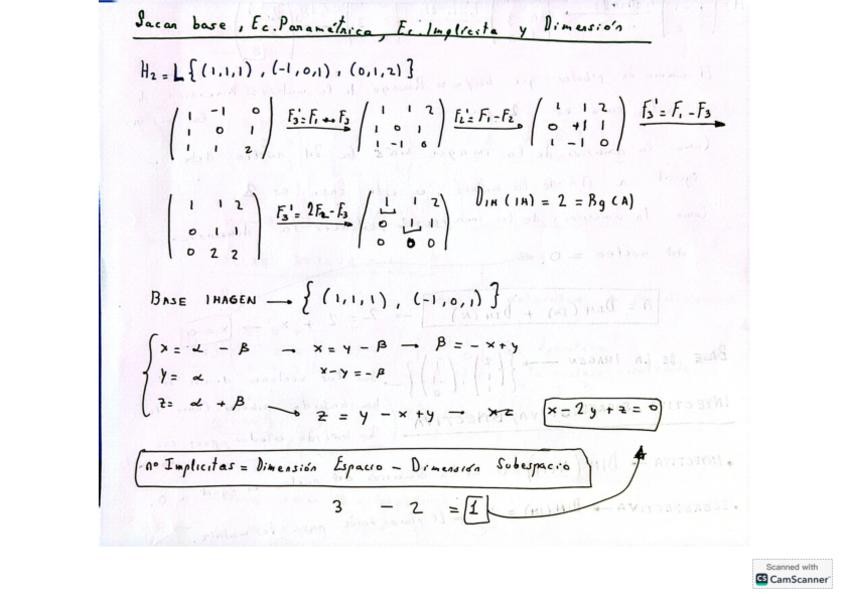 Sacar base, Ec. Paramétrica, Ec. Implícita y Dimensión
H₂ = L{(1,1,1), (-1,0,1), (0,1,2)}
( 1 -1 0 ; 1 0 1 ; 1 1 2 ) F₃' = F₁ ↔ F₃ → ( 1 1 2 ; 1 0 1 ; 1 -1 0 ) F₂' = F₁ - F₂ → ( 1 1 2 ; 0 +1 1 ; 1 -1 0 ) F₃' = F₁ - F₃ →
( 1 1 2 ; 0 1 1 ; 0 2 2 ) F₃' = 2F₂ - F₃ → ( 1 1 2 ; 0 1 1 ; 0 0 0 ) DIM (IM) = 2 = Rg (A)
BASE IMAGEN → { (1,1,1), (-1,0,1) }
x = α - β → x = y - β → β = -x+y
y = α x-y = -β
z = α + β → z = y - x + y → x= x - 2y + z = 0
nº Implícitas = Dimensión Espacio - Dimensión Subespacio
3 - 2 = 1
Scanned with
CS CamScanner